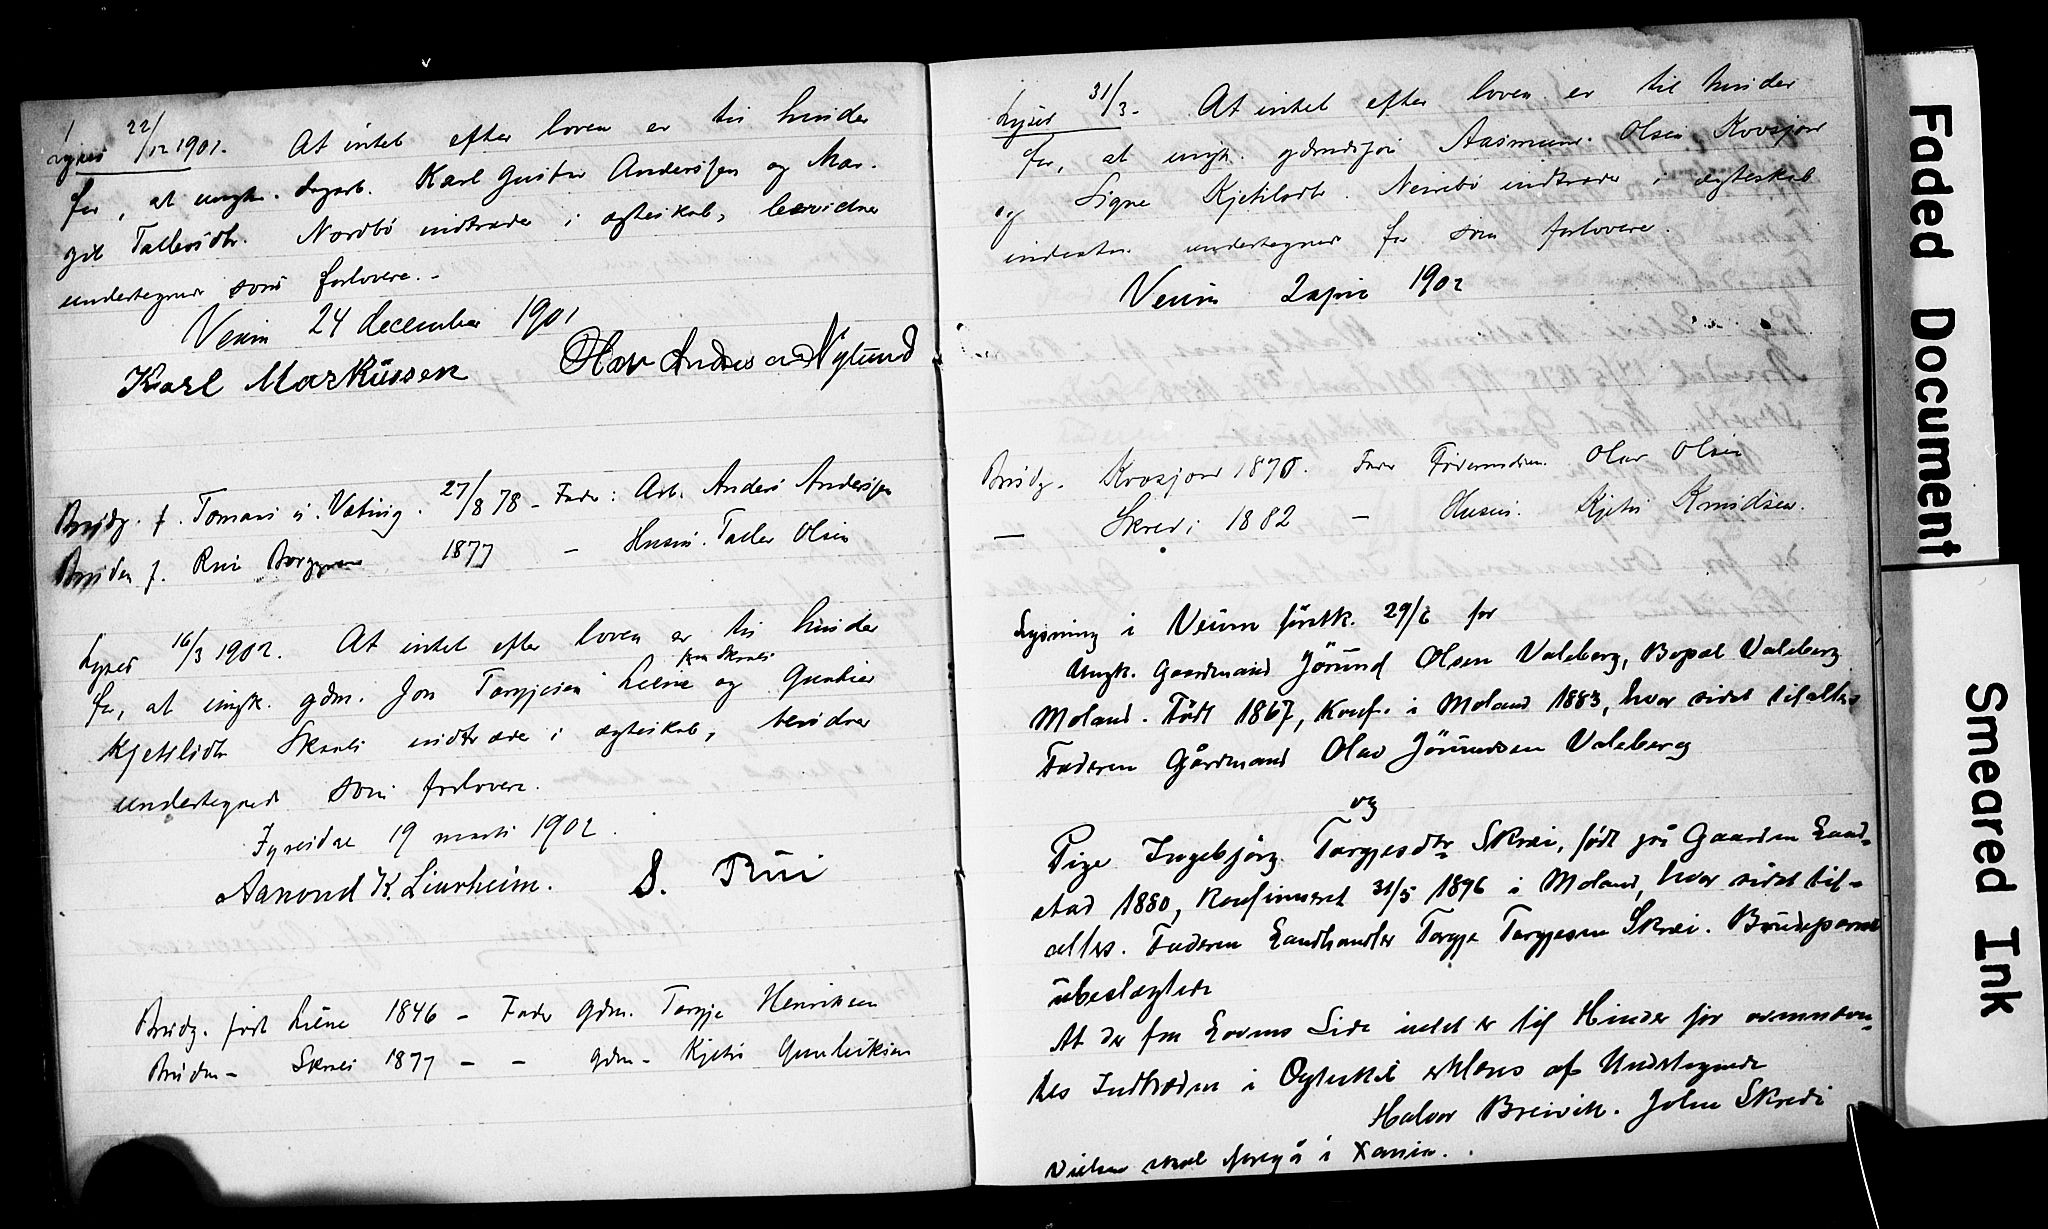 Lyses 22/12 1901. At intet efter loven er til hinder
for, at ungk. dagarb. Karl Gustav Anderssen og Mar-
git Tallevsdtr. Nordbö indtræder i ægteskab, bevidner
undertegnede som forlovere.-
Veum 24 december 1901
Karl Markussen Olav Andreas Nylund
Brudg. f. Tomasi i. 27/8 78 - Fader: Arb. Anders Anderssen
Bruden f. Rui 1877 - Husm. Tallev Olsen
Lyses 16/3 1902. At intet efter loven er til hinder
for, at ungk. gdm. Jon Targjesen Liene og Gunhild
Kjetilsdtr Skrali indtræder i ægteskab, bevidner
undertegnede som forlovere.
Fyresdal 19 marts 1902.
Aanond K. Lieurheim. S. Rui
Brudg. født Liene 1846 - Fader gdm. Targje Henriksen
Bruden - Skrali 1877 - - gdm. Kjetil Gunleiksen
Lyses 31/3 - At intet efter loven er til hinder
for, at ungk. Aasmund Olsen Kvosjord
og Signe Kjetilsdtr. indtræder i ægteskab
indestaar undertegnede for som forlovere.
Veum 2 april 1902
Brudg. Kvosjord 1870. Fader Olav Olsen
— Skredi 1882 - Husm. Kjetil Knudsen.
Lysning i Veum förstk. 29/6 for
Ungk. Gaardmand Jörund Olsen Valeberg, Bopæl Valeberg
Moland. Födt 1867, Konf. i Moland 1883, hvor sidst tilaltes
Faderen Gårdmand Olav Jörundsen Valeberg
og
Pige Ingebjörg Targjesdtr Skrei, født på Gaarden Land-
stad 1880, Konfirmeret 31/5 1896 i Moland, hvor sidst til-
altes. Faderen Landhandler Targje Targjesen Skrei. Brudeparret
ubeslægtede
At der fra Lovens Side intet er til Hinder for ovennævn-
tes Indtræden i Ægteskab erklæres af Undertegnede
Halvor Breivik. John Skredi
Vielsen skal foregå i Xania.
Faded Document
Smeared Ink